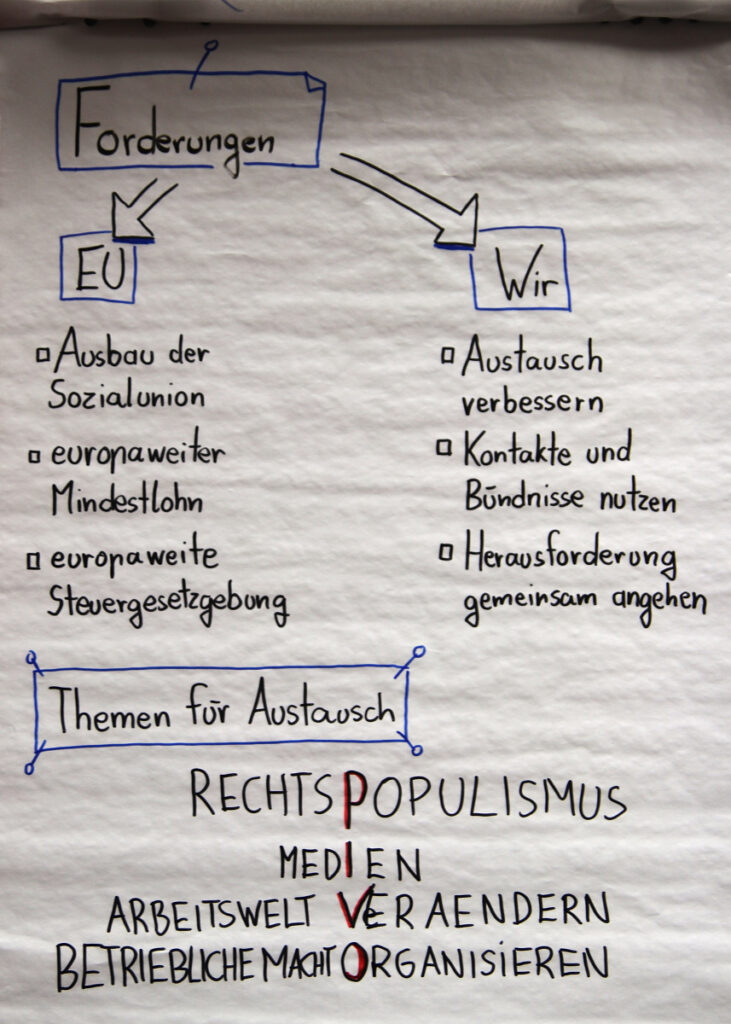 Forderungen
EU
Wir
Ausbau der
Sozialunion
europaweiter
Mindestlohn
europaweite
Steuergesetzgebung
Austausch
verbessern
Kontakte und
Bündnisse nutzen
Herausforderung
gemeinsam angehen
Themen für Austausch
RECHTSPOPULISMUS
MEDIEN
ARBEITSWELT VeRAENDERN
BETRIEBLICHE MACHT ORGANISIEREN